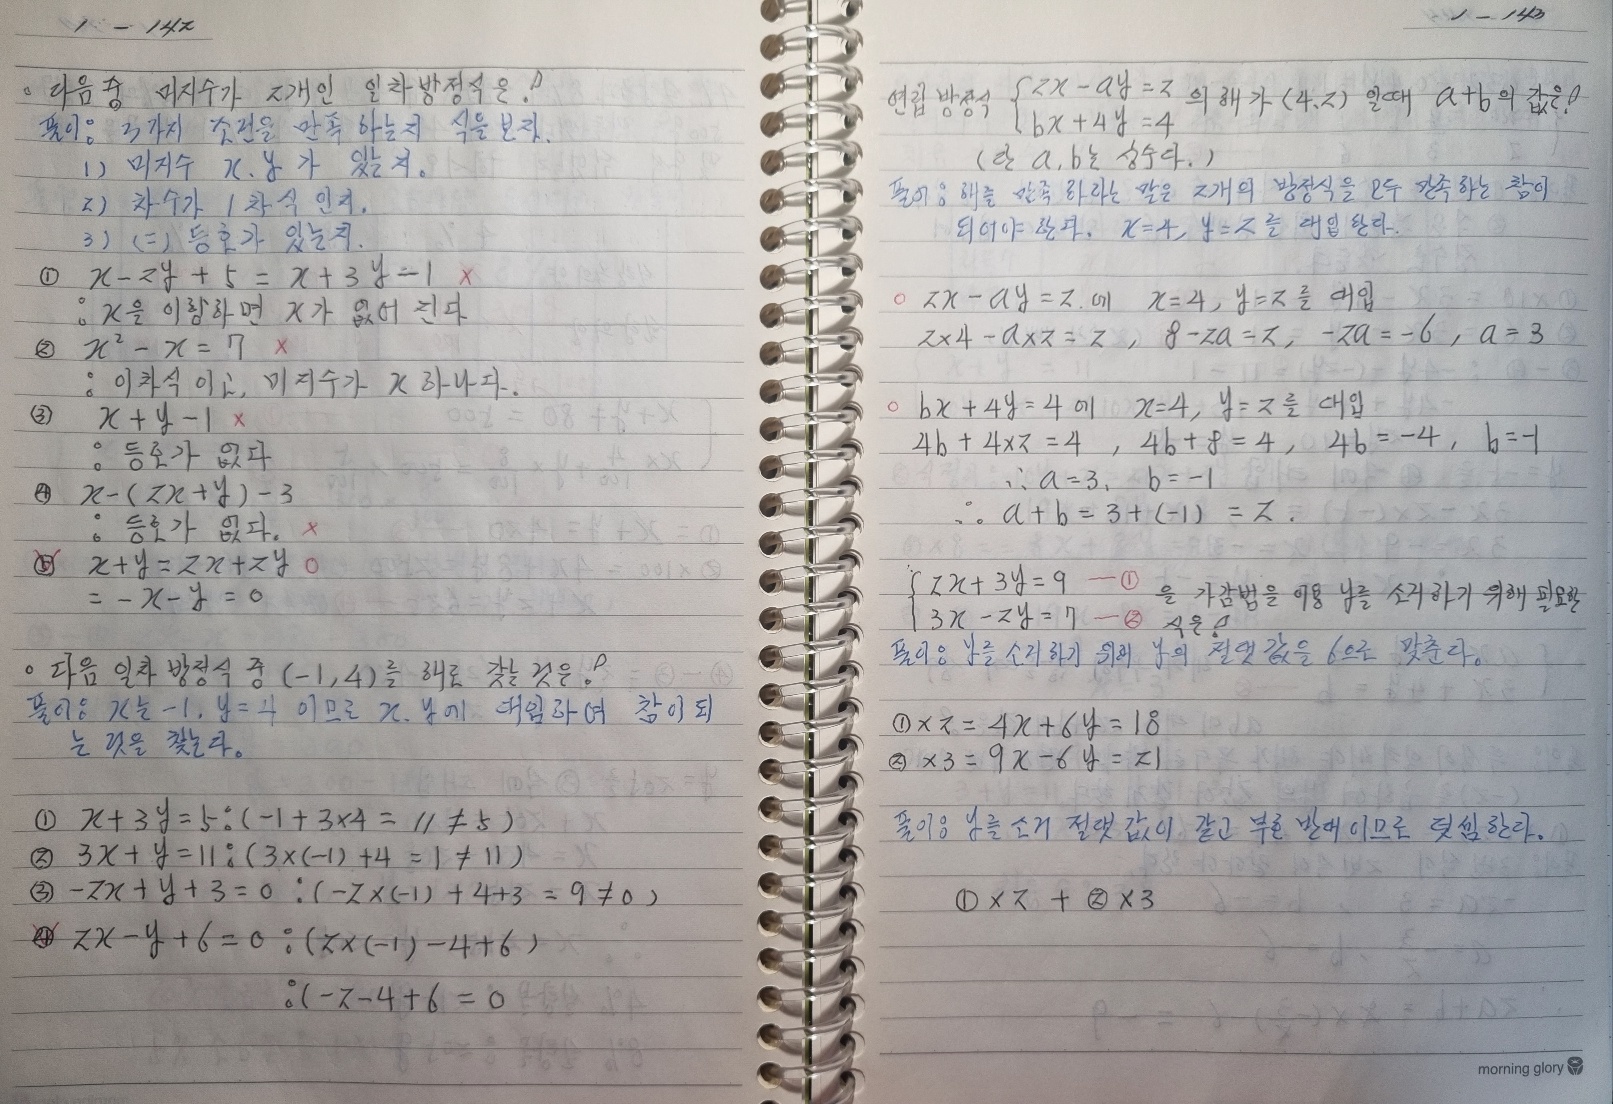 1 - 142
◦ 다음 중 미지수가 2개인 일차방정식은?
풀이: 3가지 조건을 만족 하는지 식을 보자.
1) 미지수 x, y 가 있는지.
2) 차수가 1차식 인지.
3) (=) 등호가 있는지.
① x-2y+5 = x+3y-1 ×
: x을 이항하면 x가 없어 진다
② x² - x = 7 ×
: 이차식 이고, 미지수가 x 하나다.
③ x+y-1 ×
: 등호가 없다
④ x-(2x+y)-3
: 등호가 없다. ×
⑤ x+y=2x+2y ○
= -x-y = 0
◦ 다음 일차 방정식 중 (-1,4)를 해로 갖는 것은?
풀이: x는 -1, y=4 이므로 x, y에 대입하여 참이 되
는 것을 찾는다.
① x+3y=5 : (-1+3×4 = 11 ≠ 5)
② 3x+y=11 : (3×(-1)+4 = 1 ≠ 11)
③ -2x+y+3=0 : (-2×(-1)+4+3 = 9 ≠ 0)
④ 2x-y+6=0 : (2×(-1)-4+6)
: (-2-4+6 = 0
1 - 143
연립 방정식 { 2x-ay=2 의 해가 (4,2) 일때 a+b의 값은?
bx+4y=4
(단 a,b는 상수다.)
풀이: 해를 만족 하라는 말은 2개의 방정식을 모두 만족하는 참이
되어야 한다. x=4, y=2를 대입 한다.
○ 2x-ay=2.에 x=4, y=2를 대입
2×4-a×2=2, 8-2a=2, -2a=-6, a=3
○ bx+4y=4에 x=4, y=2를 대입
4b+4×2=4, 4b+8=4, 4b=-4, b=-1
∴ a=3, b=-1
∴ a+b = 3+(-1) = 2.
{ 2x+3y=9 —① 을 가감법을 이용 y를 소거하기 위해 필요한
3x-2y=7 —② 식은?
풀이: y를 소거하기 위해 y의 절댓값을 6으로 맞춘다.
①×2 = 4x+6y = 18
②×3 = 9x-6y = 21
풀이: y를 소거 절댓값이 같고 부호 반대이므로 덧셈한다.
①×2 + ②×3
morning glory